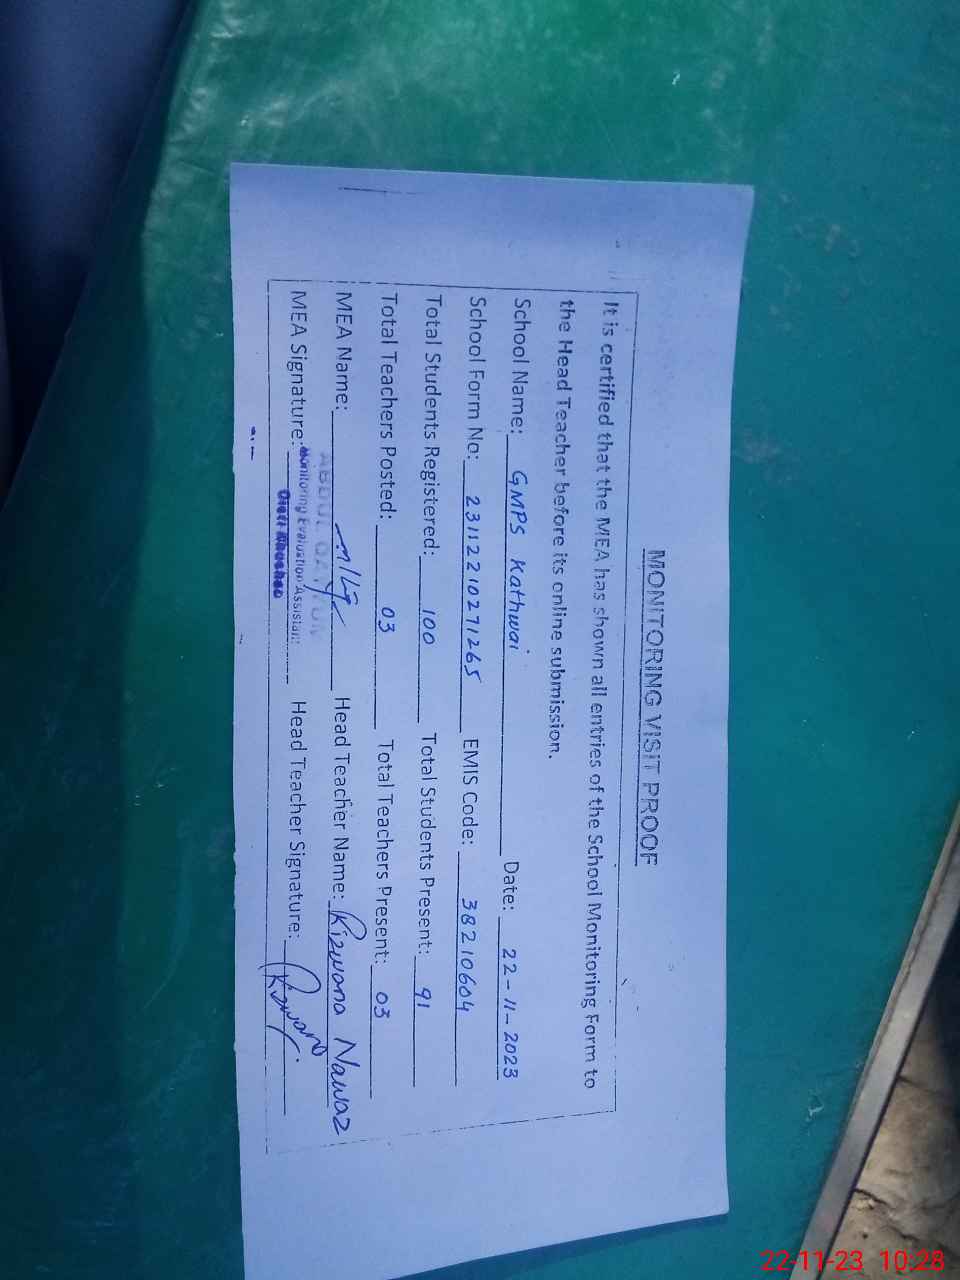 MONITORING VISIT PROOF
It is certified that the MEA has shown all entries of the School Monitoring Form to
the Head Teacher before its online submission.
School Name: GMPS Kathwai Date: 22-11-2023
School Form No: 23112210271265 EMIS Code: 38210604
Total Students Registered: 100 Total Students Present: 91
Total Teachers Posted: 03 Total Teachers Present: 03
MEA Name: ABDUL QAYYUM Head Teacher Name: Rizwana Nawaz
MEA Signature: Monitoring Evaluation Assistant Head Teacher Signature: Rizwana
Distt Khushab
22-11-23 10:28